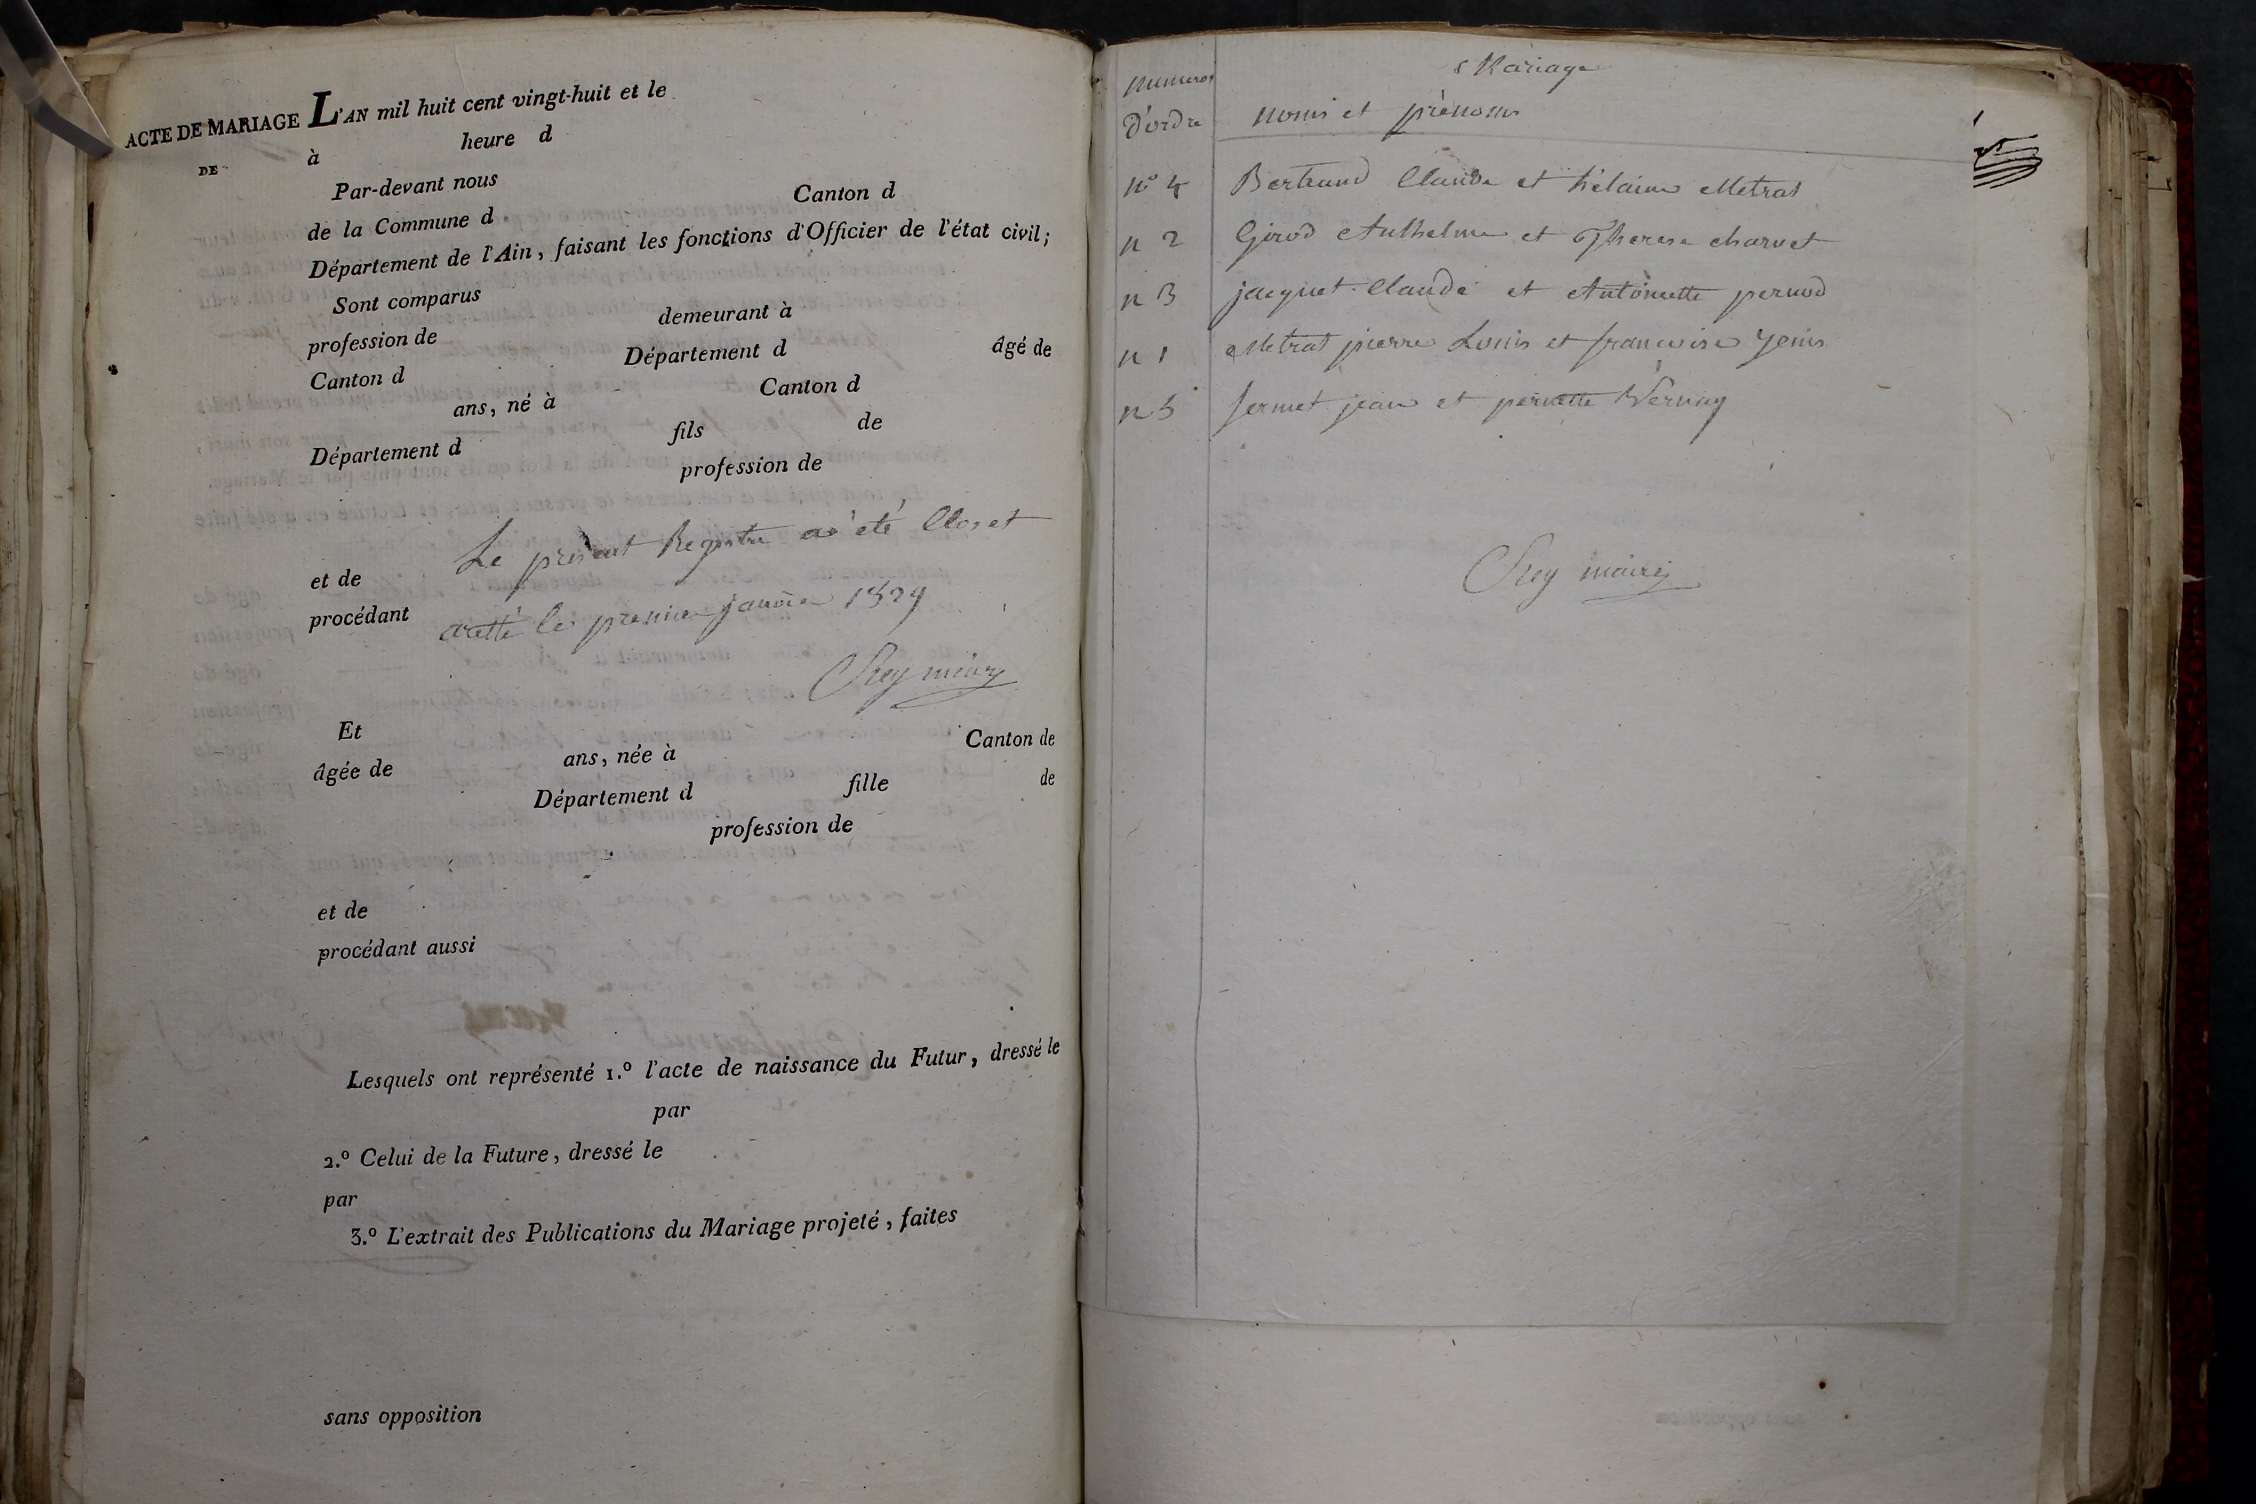 ACTE DE MARIAGE L'AN mil huit cent vingt-huit et le
DE à heure d
Par-devant nous
de la Commune d Canton d
Département de l'Ain, faisant les fonctions d'Officier de l'état civil;
Sont comparus
profession de demeurant à
Canton d Département d âgé de
ans, né à Canton d
Département d fils de
profession de
Le present Registre a été Clos et
et de
procédant
aretté le premier janvier 1829
Rey maire
Et
âgée de ans, née à Canton de
Département d fille de
profession de
et de
procédant aussi
Lesquels ont représenté 1.º l'acte de naissance du Futur, dressé le
par
2.º Celui de la Future, dressé le
par
3.º L'extrait des Publications du Mariage projeté, faites
sans opposition
numeros Mariage
D'ordre noms et prénoms
nº 4 Bertrand Claude et hélaine Metral
n 2 Girod Anthelme et Therese charvet
n 3 jacquet Claude et Antoinette pernod
n 1 Metral pierre Louis et francoise
n 5 fermet jean et pernette Vernay
Rey maire